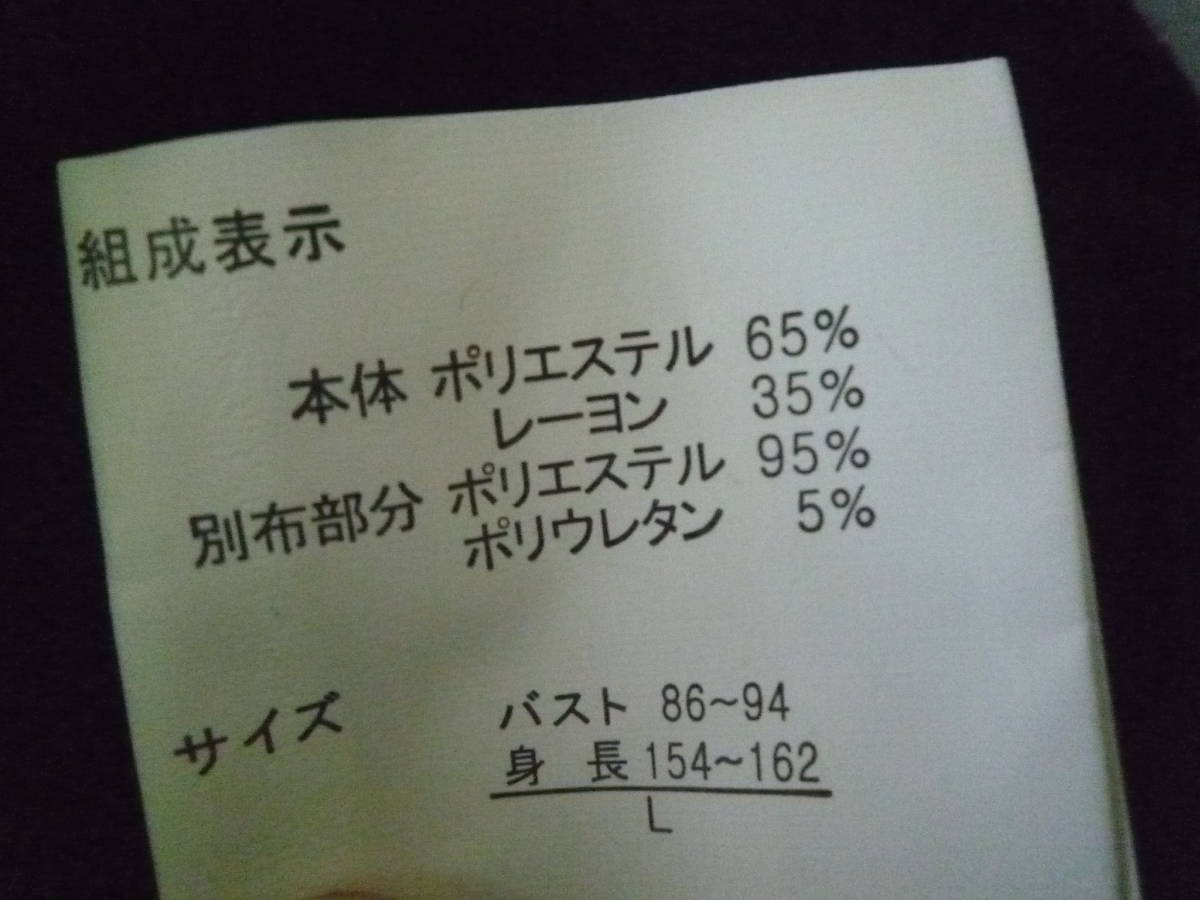 組成表示
本体 ポリエステル 65%
レーヨン 35%
別布部分 ポリエステル 95%
ポリウレタン 5%
サイズ バスト 86~94
身 長 154~162
L